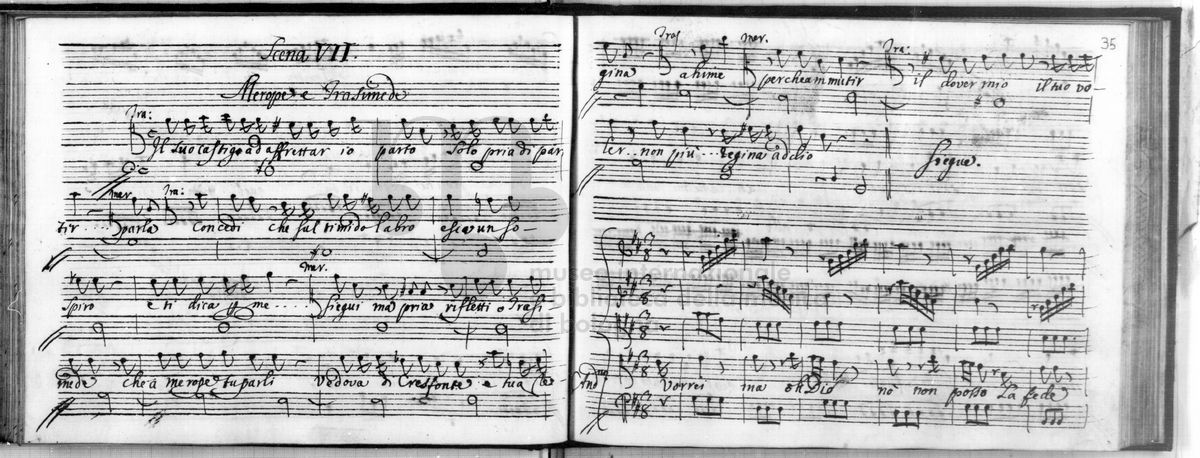 Scena VII.
Merope e Trasimede
Tra:
Il tuo castigo ad affrettar io parto Solo pria di par
mer. Tra:
tir .... parla Concedi che sul timido labro esca un so-
mer.
spiro e ti dica .... me ..... Siegui ma pria rifletti o Trasi-
mede che à merope tu parli Vedova di Cresfonte e tua
35
Tras mer. Tra:
gina ahime perche ammutir il dover mio il tuo vo-
ler .. non più .... Regina addio Siegue.
museo internazionale
Vorrei ma oh Dio nò non posso La fede